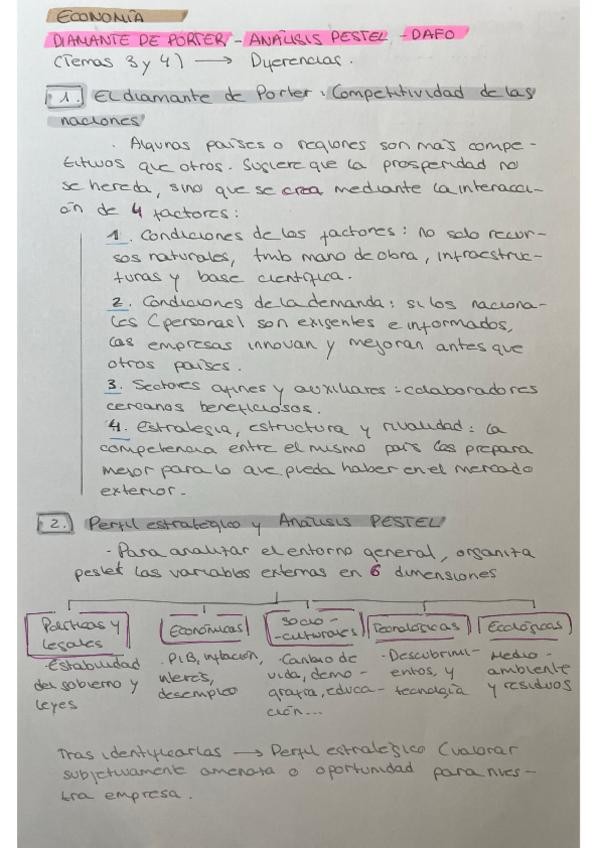 ECONOMÍA
DIAMANTE DE PORTER - ANÁLISIS PESTEL - DAFO
(Temas 3 y 4) → Diferencias.
1. El diamante de Porter: Competitividad de las
naciones
· Algunos países o regiones son más compe-
titivos que otros. Sugiere que la prosperidad no
se hereda, sino que se crea mediante la interacci-
ón de 4 factores:
1. Condiciones de los factores: no solo recur-
sos naturales, tmb mano de obra, infraestruc-
turas y base científica.
2. Condiciones de la demanda: si los naciona-
les (personas) son exigentes e informados,
las empresas innovan y mejoran antes que
otros países.
3. Sectores afines y auxiliares: colaboradores
cercanos beneficiosos.
4. Estrategia, estructura y rivalidad: la
competencia entre el mismo país las prepara
mejor para lo que pueda haber en el mercado
exterior.
2. Perfil estratégico y Análisis PESTEL
· Para analizar el entorno general, organiza
pestel las variables externas en 6 dimensiones
Políticas y
legales
· Estabilidad
del gobierno y
leyes
Económicas
· PIB, inflación,
interés,
desempleo
Socio-
-culturales
· Cambio de
vida, demo-
grafía, educa-
ción...
Tecnológicas
· Descubrimi-
entos, y
tecnología
Ecológicas
· Medio-
ambiente
y residuos
Tras identificarlas → Perfil estratégico (valorar
subjetivamente amenaza o oportunidad para nues-
tra empresa.